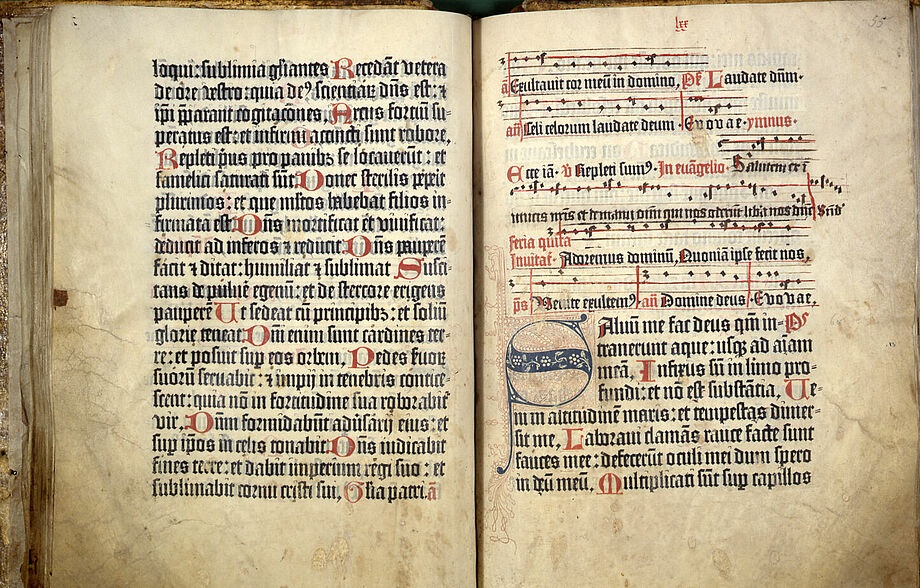 loqui: sublimia gl̄iantes Recedāt vetera
de ore vestro: quia de⁹ scienciaꝝ dn̄s est: ⁊
ip̄i p̄parant̄ cogitac̄ones. Arcus forciū su-
peratus est: et infirmi accincti sunt robore.
Repleti p̄us pro panibꝫ se locauerūt: et
famelici saturati sūt. Donec sterilis pep̄it
plurimos: et que mltos habebat filios in-
firmata est. Dn̄s mortificat et viuificat:
deducit ad inferos ⁊ reducit. Dn̄s paupeꝝ
facit ⁊ ditat: humiliat ⁊ sublimat. Susci-
tans de puluē egenū: et de stercore erigens
pauperē. Ut sedeat cū principibꝫ: et soliū
glorie teneat. Dn̄i enim sunt cardines ter-
re: et posuit sup eos orbem. Pedes suoꝝ
suorū seruabit: ⁊ impij in tenebris contice-
scent: quia nō in fortitudine sua roborabit̄
vir. Dn̄m formidabūt aduersarij eius: et
sup ip̄os in celis tonabit. Dn̄s iudicabit
fines terre: et dabit imperium regi suo: et
sublimabit cornu cristi sui. Gl̄ia patri. a̅
lxx
55
a̅ Exultauit cor meū in domino. Ps̄ Laudate dn̄m.
an̄ Celi celorum laudate deum. Evovae. ymnus.
Ecce iā. v̄ Repleti sum⁹. In euāgelio. Salutem ex i
nimicis nr̄is et de manu om̄i qui nos oderūt libera nos dn̄e
feria quīta
Inuitat̄. Adoremus dominū, Quoniā ipse fecit nos.
ps̄ Venite exultem⁹. an̄ Domine deus. Evovae.
Saluū me fac deus qm̄ in- Ps̄
trauerunt aque: usqꝫ ad aīam
meā. Infixus sū in limo pro-
fundi: et nō est substācia. Ue-
ni in altitudinē maris: et tempestas dimer-
sit me. Laboraui clamās rauce facte sunt
fauces mee: defecerūt oculi mei dum spero
in deū meū. Multiplicati sūt sup capillos